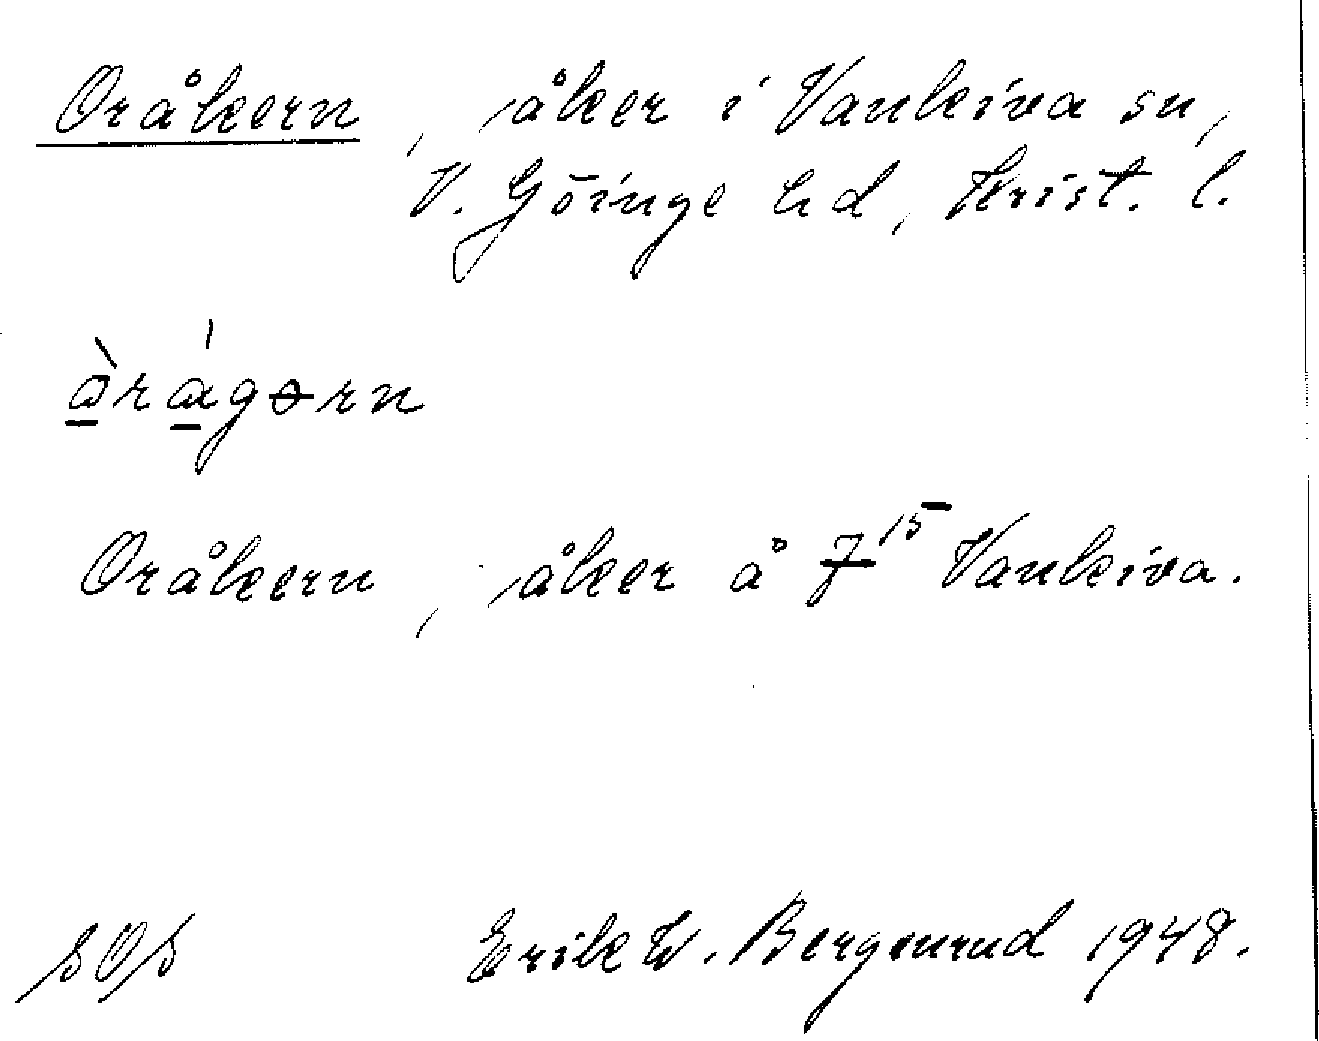 Oråkern, åker i Vankiva sn,
V. Göinge hd, Krist. l.
àrágərn
Oråkern, åker å 7¹⁵ Vankiva.
SOS Erik W. Bergenrud 1948.